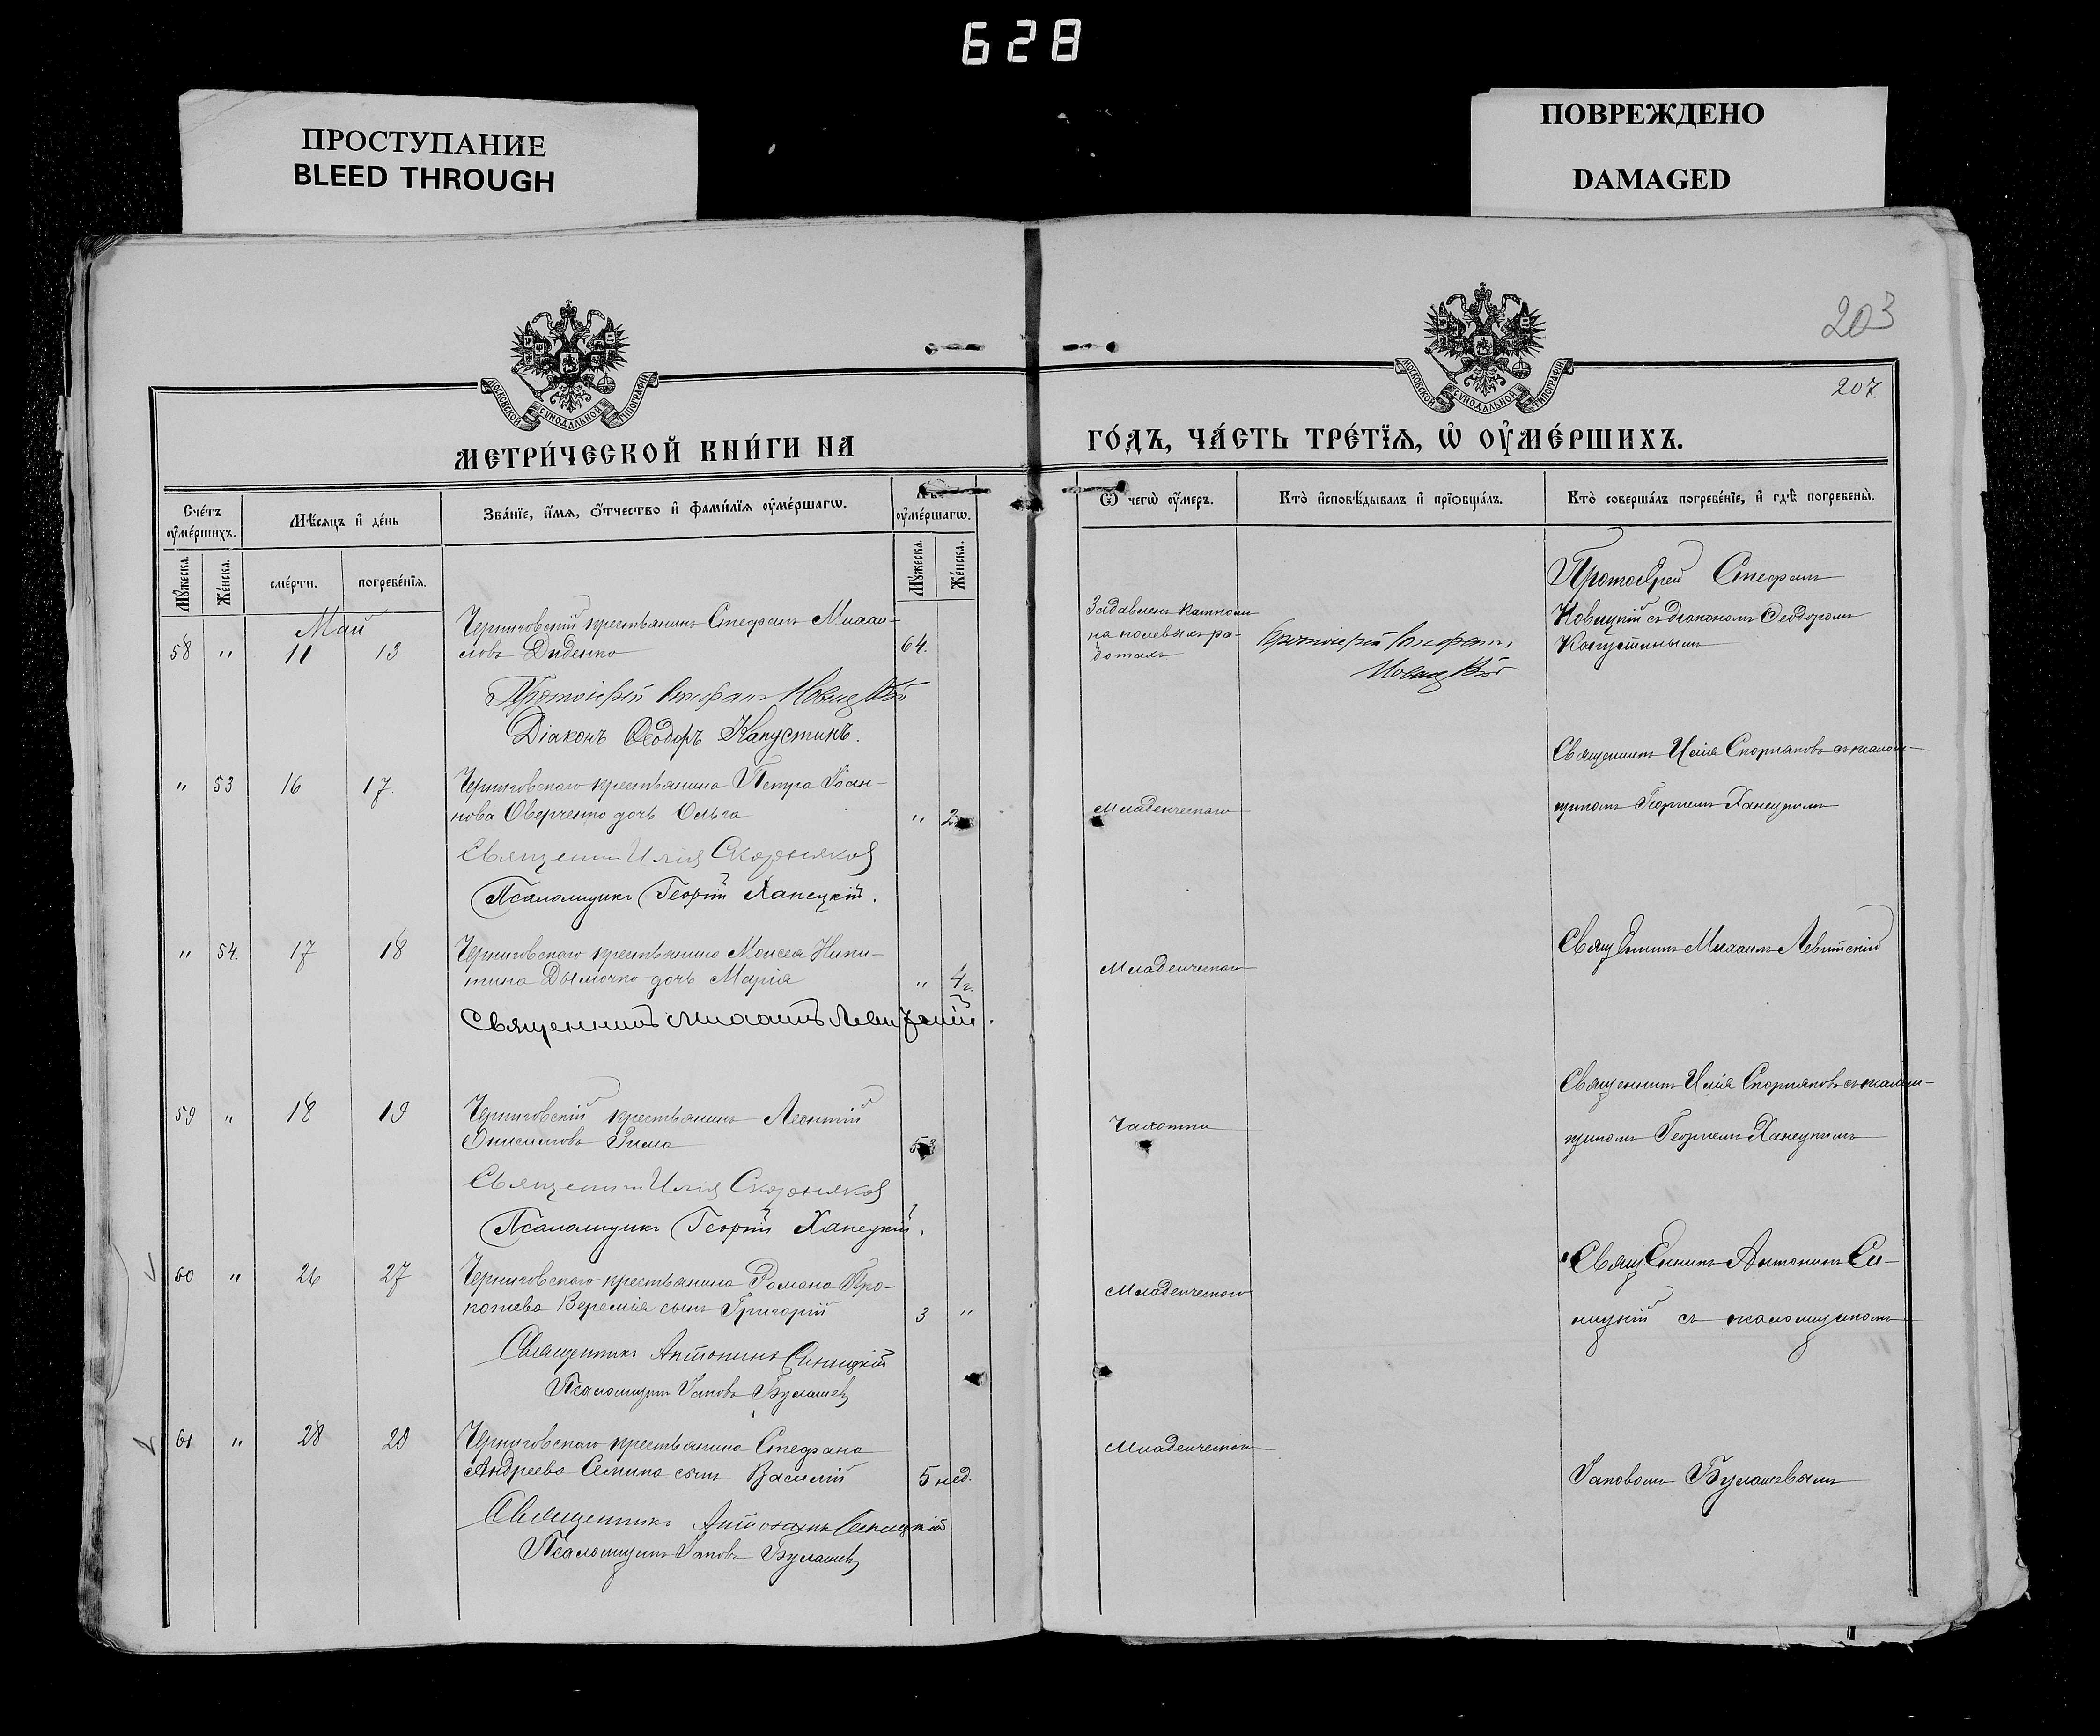 628
ПРОСТУПАНИЕ
BLEED THROUGH
ПОВРЕЖДЕНО
DAMAGED
203
207.
МОСКОВСКОЙ СУНОДАЛЬНОЙ ТИПОГРАФІИ
МОСКОВСКОЙ СУНОДАЛЬНОЙ ТИПОГРАФІИ
МЕТРИ́ЧЕСКОЙ КНИ́ГИ НА
ГО́ДЪ, ЧА́СТЬ ТРЕ́ТЇѦ, Ѡ҆ ОУ҆МЕ́РШИХЪ.
Сче́тъ оу҆ме́ршихъ.
Мѣ́сяцъ и҆ де́нь
Зва́нїе, и҆́мя, о҆́тчество и҆ фами́лїя оу҆ме́ршагѡ.
оу҆ме́ршагѡ.
Ѿ чегѡ̀ оу҆́меръ.
Кто̀ и҆сповѣ́дывалъ и҆ прїѡбща́лъ.
Кто̀ соверша́лъ погребе́нїе, и҆ гдѣ̀ погребены̀.
Мꙋ́жеска.
Же́нска.
сме́рти.
погребе́нїя.
Мꙋ́жеска.
Же́нска.
Май
58 " 11 13 Черниговскій крестьянинъ Стефанъ Михаи-
ловъ Диденко 64.
Задавленъ катком
на полевыхъ ра-
ботахъ
Протоіерей Стефанъ
Новицкій
Протоіерей Стефанъ
Новицкій съ діакономъ Ѳеодоромъ
Капустинымъ
Протоіерей Стефанъ Новицкій
Діаконъ Ѳеодоръ Капустинъ.
" 53 16 17. Черниговскаго крестьянина Петра Іоан-
нова Оверченко дочь Ольга " 2
Младенческаго
Священникъ Илія Скорняковъ съ псалом-
щикомъ Георгіемъ Ханецкимъ
Священникъ Илія Скорняковъ
Псаломщикъ Георгій Ханецкій.
" 54. 17 18 Черниговскаго крестьянина Моисея Ники-
тина Дымочко дочь Марія " 4 г.
Младенческаго
Священникъ Михаилъ Левитскій
Священникъ Михаилъ Левитскій.
59 " 18 19 Черниговскій крестьянинъ Леонтій
Онисимовъ Зима 53
Чахотки
Священникъ Илія Скорняковъ съ псалом-
щикомъ Георгіемъ Ханецкимъ
Священникъ Илія Скорняковъ
Псаломщикъ Георгій Ханецкій.
60 " 26 27 Черниговскаго крестьянина Романа Про-
копіева Веремія сынъ Григорій 3 "
Младенческаго
Священникъ Антонинъ Си-
ницкій съ псаломщикомъ
Священникъ Антонинъ Синицкій
Псаломщикъ Іаковъ Булашевъ
61 " 28 29 Черниговскаго крестьянина Стефана
Андреева Семина сынъ Василій 5 нед.
Младенческаго
Іаковомъ Булашевымъ
Священникъ Антонинъ Синицкій
Псаломщикъ Іаковъ Булашевъ